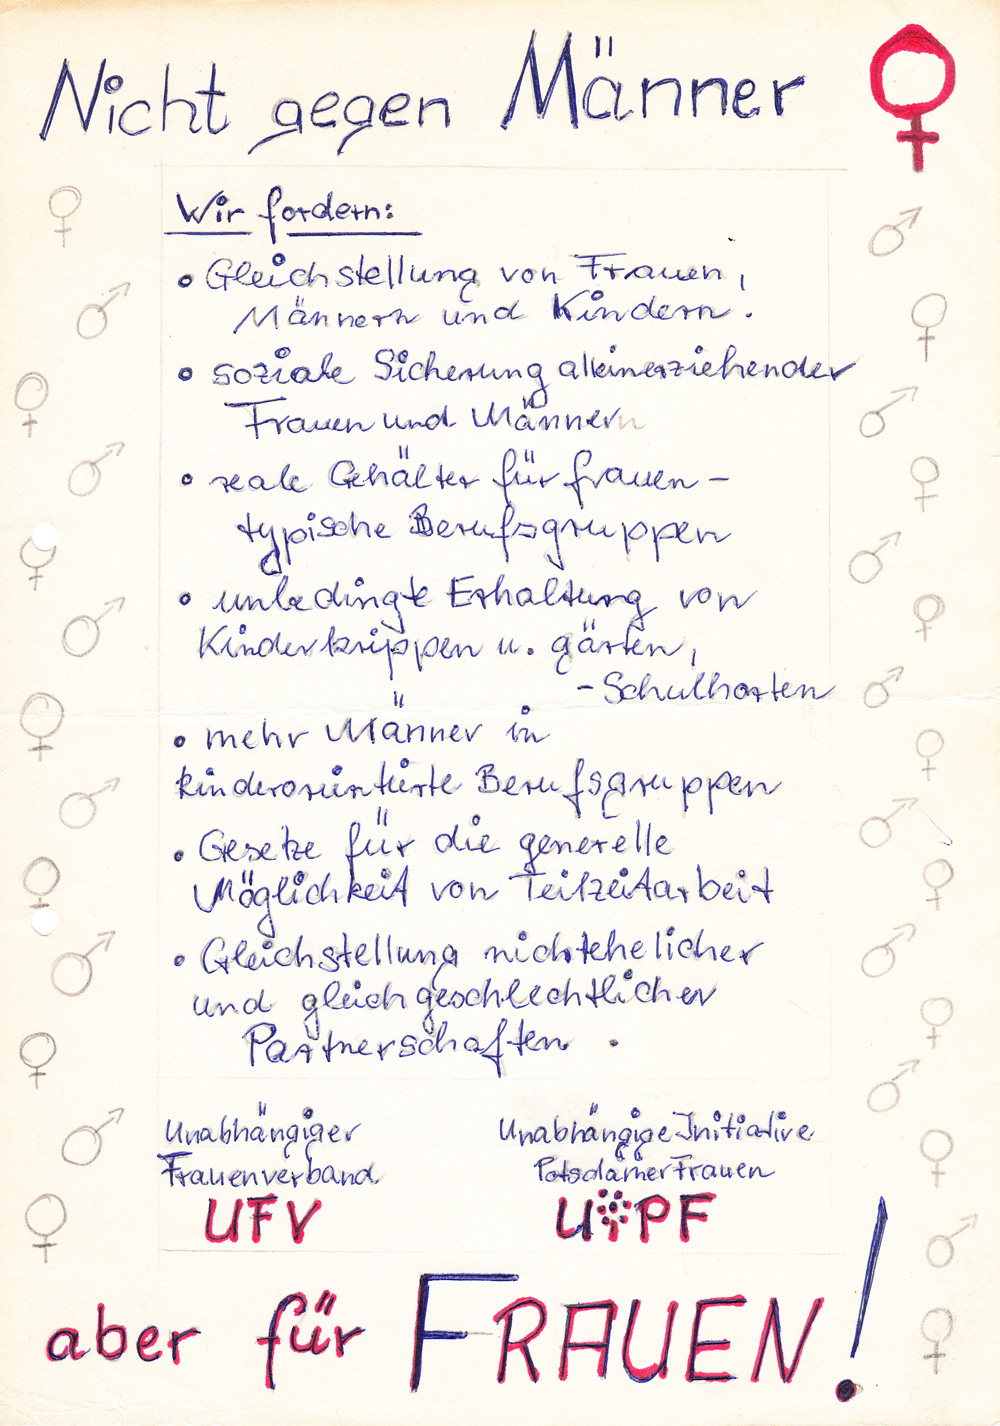 Nicht gegen Männer
Wir fordern:
• Gleichstellung von Frauen,
Männern und Kindern.
• soziale Sicherung alleinerziehender
Frauen und Männern
• reale Gehälter für frauen-
typische Berufsgruppen
• unbedingte Erhaltung von
Kinderkrippen u. gärten,
- Schulhorten
• mehr Männer in
kinderorientierte Berufsgruppen
• Gesetze für die generelle
Möglichkeit von Teilzeitarbeit
• Gleichstellung nichtehelicher
und gleichgeschlechtlicher
Partnerschaften.
Unabhängiger
Frauenverband
UFV
Unabhängige Initiative
Potsdamer Frauen
UIPF
aber für FRAUEN!